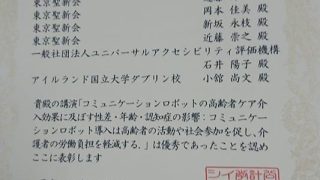 東京聖新会
東京聖新会 岡本 佳美 殿
東京聖新会 新坂 永枝 殿
東京聖新会 近藤 崇之 殿
一般社団法人ユニバーサルアクセシビリティ評価機構
石井 陽子 殿
アイルランド国立大学ダブリン校 小舘 尚文 殿
貴殿の講演「コミュニケーションロボットの高齢者ケア介
入効果に及ぼす性差・年齢・認知症の影響:コミュニケー
ションロボット導入は高齢者の活動や社会参加を促し、介
護者の労働負担を軽減する。」は優秀であったことを認め
ここに表彰します